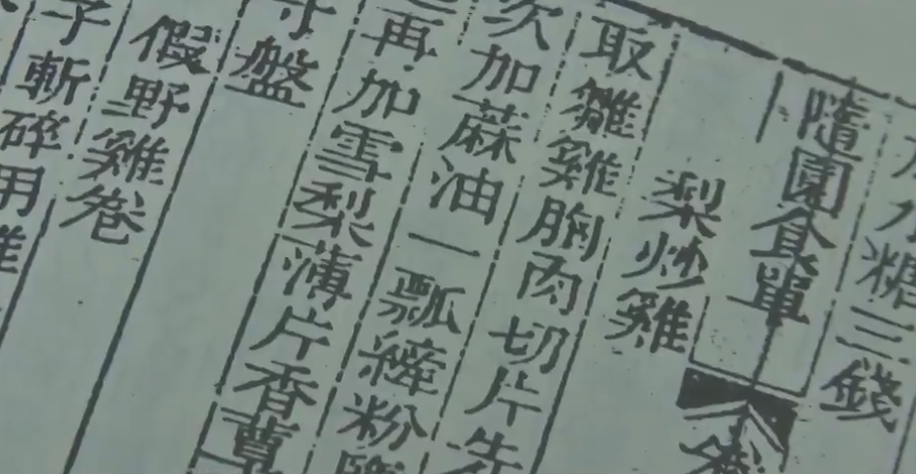 糖三錢
隨園食單
梨炒雞
取雛雞胸肉切片先
次加蔴油一瓢縴粉鹽
再加雪梨薄片香蕈
寸盤
假野雞卷
子斬碎用雞